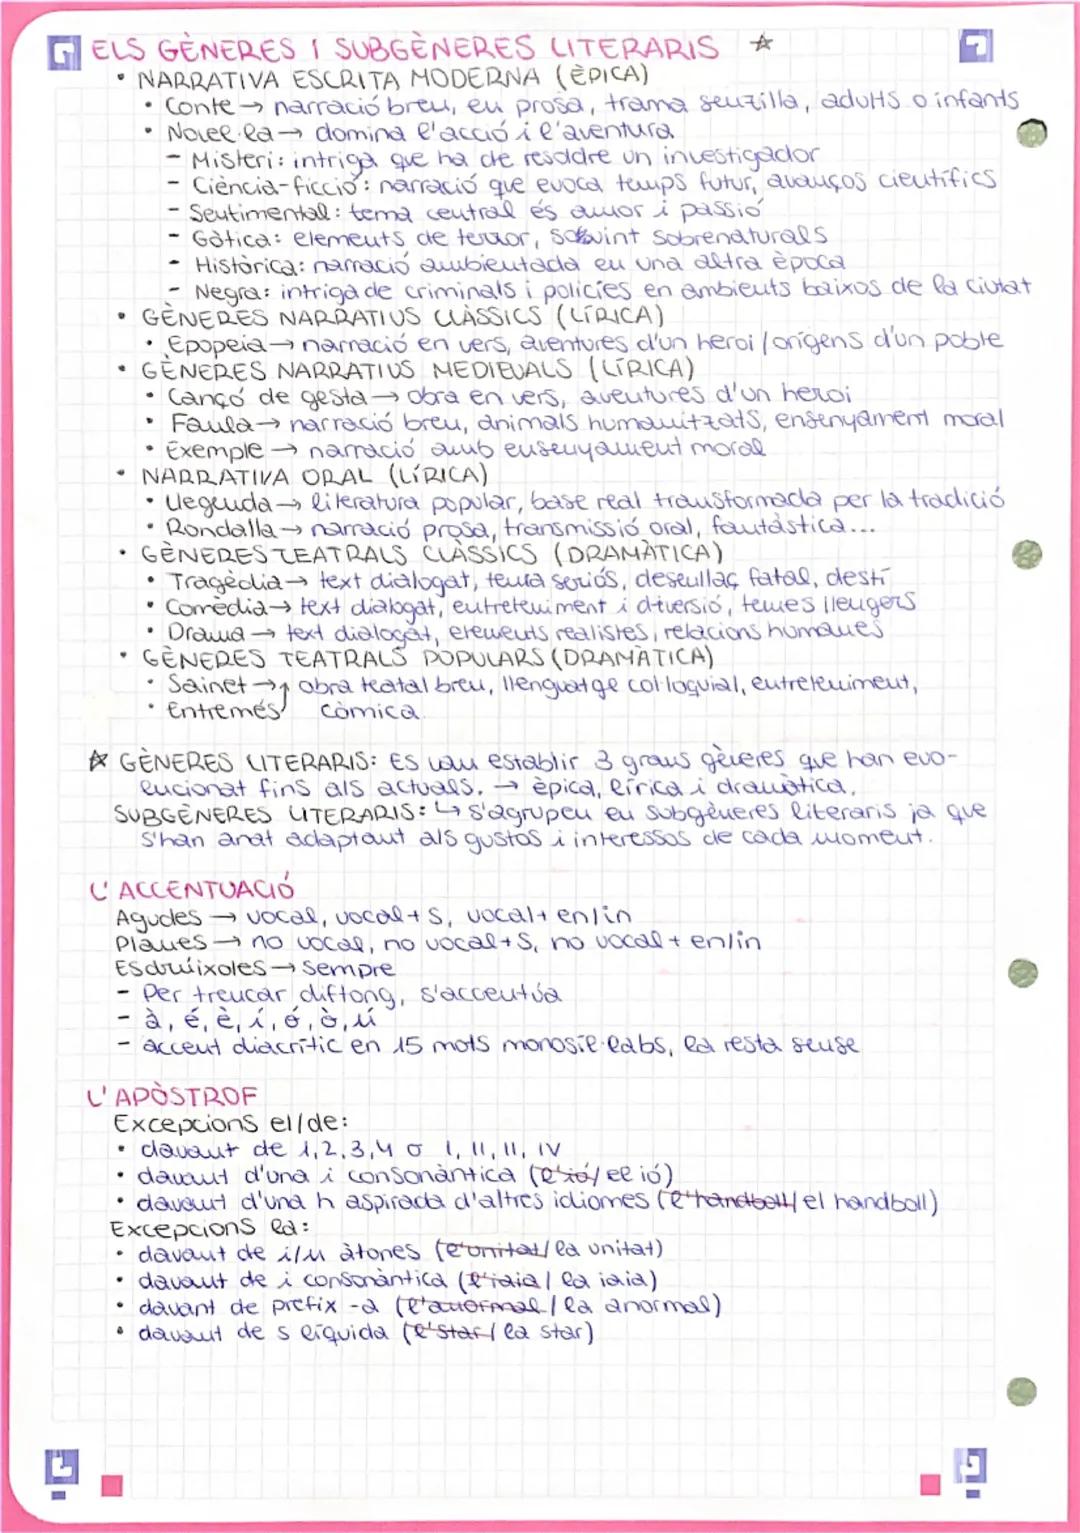 ELS GÈNERES I SUBGÈNERES LITERARIS ☆
• NARRATIVA ESCRITA MODERNA (ÈPICA)
• Conte → narració breu, en prosa, trama senzilla, adults o infants
• Novel·la → domina l'acció i l'aventura
- Misteri: intriga que ha de resoldre un investigador
- Ciència-ficció: narració que evoca temps futur, avanços científics
- Sentimental: tema central és amor i passió
- Gòtica: elements de terror, sovint sobrenaturals
- Històrica: narració ambientada en una altra època
- Negra: intriga de criminals i policíes en ambients baixos de la ciutat
• GÈNERES NARRATIUS CLÀSSICS (LÍRICA)
• Epopeia → narració en vers, aventures d'un heroi / orígens d'un poble
• GÈNERES NARRATIUS MEDIEVALS (LÍRICA)
• Cançó de gesta → obra en vers, aventures d'un heroi
• Faula → narració breu, animals humanitzats, ensenyament moral
• Exemple → narració amb ensenyament moral
• NARRATIVA ORAL (LÍRICA)
• Llegenda → literatura popular, base real transformada per la tradició
• Rondalla → narració prosa, transmissió oral, fantàstica...
• GÈNERES TEATRALS CLÀSSICS (DRAMÀTICA)
• Tragèdia → text dialogat, tema seriós, desenllaç fatal, destí
• Comèdia → text dialogat, entreteniment i diversió, temes lleugers
• Drama → text dialogat, elements realistes, relacions humanes
• GÈNERES TEATRALS POPULARS (DRAMÀTICA)
• Sainet → obra teatal breu, llenguatge col·loquial, entreteniment,
• Entremés còmica
☆ GÈNERES LITERARIS: Es van establir 3 grans gèneres que han evo-
lucionat fins als actuals. → èpica, lírica i dramàtica.
SUBGÈNERES LITERARIS: ↳ s'agrupen en subgèneres literaris ja que
s'han anat adaptant als gustos i interessos de cada moment.
L'ACCENTUACIÓ
Agudes → vocal, vocal+s, vocal+en/in
Planes → no vocal, no vocal+s, no vocal+en/in
Esdrúixoles → sempre
- Per trencar diftong, s'accentúa
- à, é, è, í, ó, ò, ú
- accent diacrític en 15 mots monosíl·labs, la resta sense
L'APÒSTROF
Excepcions el/de:
• davant de 1,2,3,4 o I, II, II, IV
• davant d'una i consonàntica (l'ió/ el ió)
• davant d'una h aspirada d'altres idiomes (l'handboll/ el handboll)
Excepcions la:
• davant de i/u àtones (l'unitat/ la unitat)
• davant de i consonàntica (l'iaia/ la iaia)
• davant de prefix -a (l'anormal/ la anormal)
• davant de s líquida (l'star/ la star)